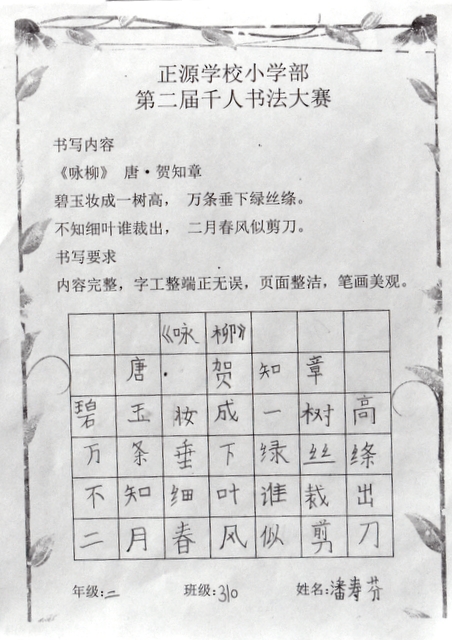 正源学校小学部
第二届千人书法大赛
书写内容
《咏柳》 唐·贺知章
碧玉妆成一树高， 万条垂下绿丝绦。
不知细叶谁裁出， 二月春风似剪刀。
书写要求
内容完整，字工整端正无误，页面整洁，笔画美观。
《咏柳》
唐·贺知章
碧玉妆成一树高
万条垂下绿丝绦
不知细叶谁裁出
二月春风似剪刀
年级:二 班级:310 姓名:潘寿芬